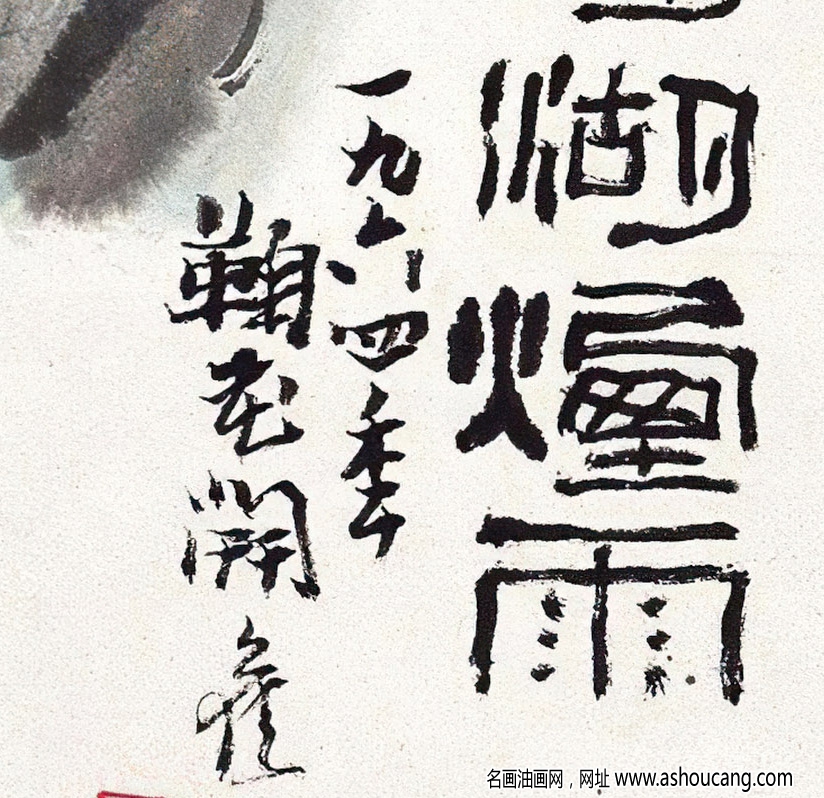 湖煙雨
一九六四年
花開
名画油画网，网址 www.ashoucang.com